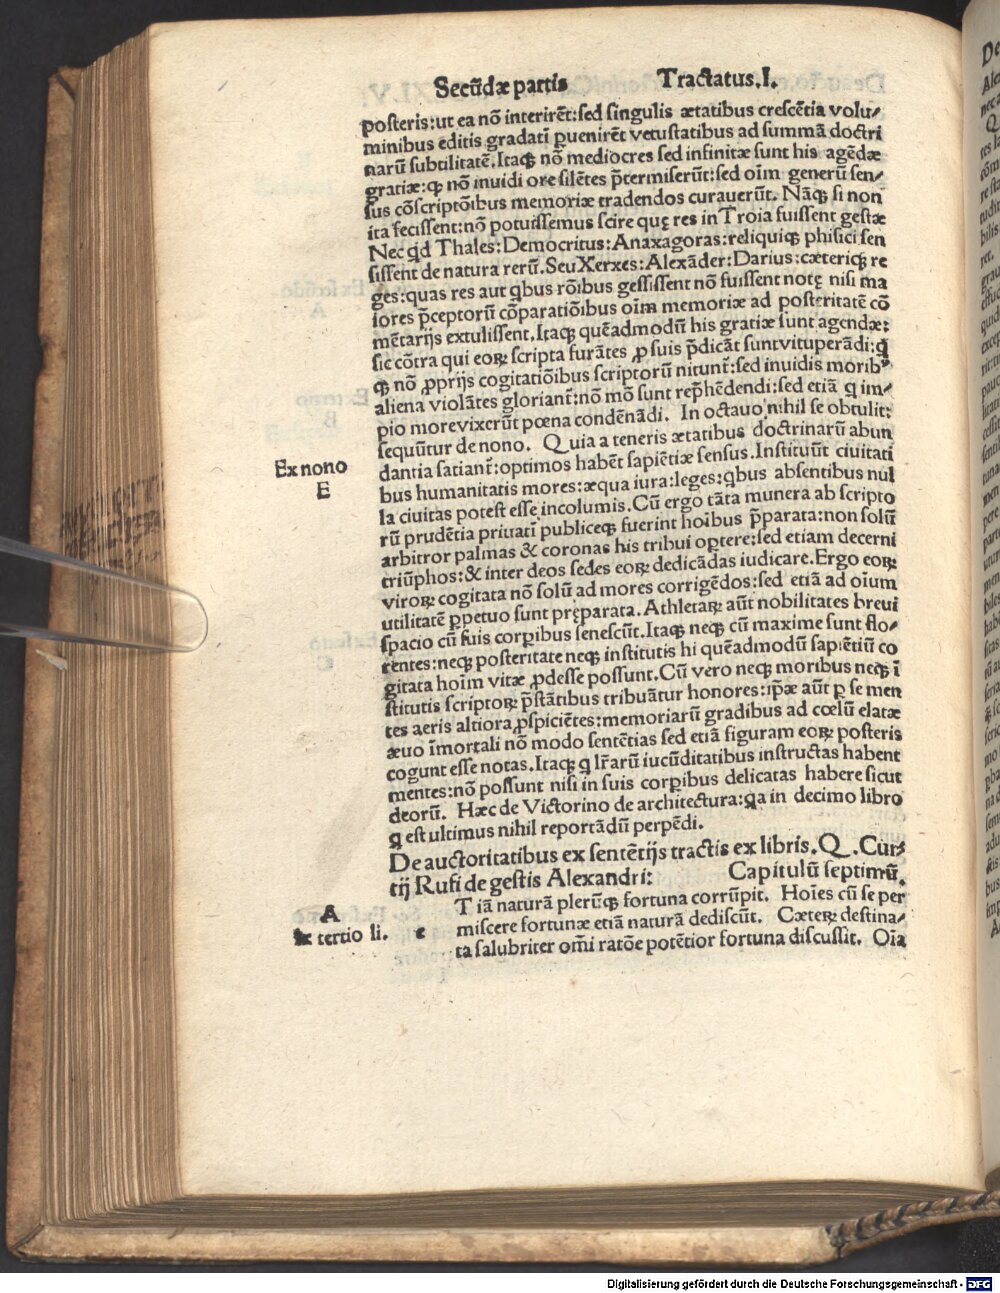 Secūdæ partis Tractatus.I.
posteris:ut ea nō interirēt:sed singulis ætatibus crescētia volu-
minibus editis gradatī puenirēt vetustatibus ad summā doctri
narū subtilitatē.Itaqꝫ nō mediocres sed infinitæ sunt his agēdæ
gratiæ:qꝫ nō inuidi ore silētes p̄termiserūt:sed oīm generū sen-
sus cōscriptōibus memoriæ tradendos curauerūt. Nāqꝫ si non
ita fecissent:nō potuissemus scire quę res in Troia fuissent gestæ
Nec qd Thales:Democritus:Anaxagoras:reliquiqꝫ phisici sen
sissent de natura rerū.Seu Xerxes:Alexāder:Darius:cæteriqꝫ re
ges:quas res aut qbus rōibus gessissent nō fuissent notę nisi ma
iores p̄ceptorū cōparatiōibus oīm memoriæ ad posteritatē cō
mētarijs extulissent.Itaqꝫ quēadmodū his gratiæ sunt agendæ:
sic cōtra qui eoꝝ scripta furātes ꝓ suis p̄dicāt sunt vituperādi:q
qꝫ nō ꝓprijs cogitatiōibus scriptorū nitunt̄:sed inuidis moribꝰ
aliena violātes gloriant̄:nō mō sunt rep̄hēdendi:sed etiā q im-
pio more vixerūt pœna condēnādi. In octauo nihil se obtulit:
sequūtur de nono. Quia a teneris ætatibus doctrinarū abun
dantia satiant̄:optimos habēt sapiētiæ sensus.Instituūt ciuitati
bus humanitatis mores:æqua iura:leges:qbus absentibus nul
la ciuitas potest esse incolumis.Cū ergo tāta munera ab scripto
rū prudētia priuatī publiceqꝫ fuerint hoībus p̄parata:non solū
arbitror palmas & coronas his tribui optere:sed etiam decerni
triūphos:& inter deos sedes eoꝝ dedicādas iudicare.Ergo eoꝝ
viroꝝ cogitata nō solū ad mores corrigēdos:sed etiā ad oīum
utilitatē ꝑpetuo sunt pręparata.Athletaꝝ aūt nobilitates breui
spacio cū suis corꝑibus senescūt.Itaqꝫ neqꝫ cū maxime sunt flo-
rentes:neqꝫ posteritate neqꝫ institutis hi quēadmodū sapiētiū co
gitata hoīm vitæ ꝓdesse possunt.Cū vero neqꝫ moribus neqꝫ ī
stitutis scriptoꝝ p̄stātibus tribuātur honores:ipæ aūt ꝑ se men
tes aeris altiora ꝓspiciētes:memoriarū gradibus ad cœlū elatæ
æuo īmortali nō modo sentētias sed etiā figuram eoꝝ posteris
cogunt esse notas.Itaqꝫ q lr̄arū iucūditatibus instructas habent
mentes:nō possunt nisi in suis corꝑibus delicatas habere sicut
deorū. Hæc de Victorino de architectura:qa in decimo libro
q est ultimus nihil reportādū perpēdi.
De auctoritatibus ex sentētijs tractis ex libris.Q.Cur-
tij Rufi de gestis Alexandri: Capitulū septimū.
e T iā naturā plerūqꝫ fortuna corrūpit. Hoīes cū se per
miscere fortunæ etiā naturā dediscūt. Cæteꝝ destina-
ta salubriter omī ratōe potētior fortuna discussit. Oīa
Ex nono
E
A
Ex tertio li.
Digitalisierung gefördert durch die Deutsche Forschungsgemeinschaft - DFG